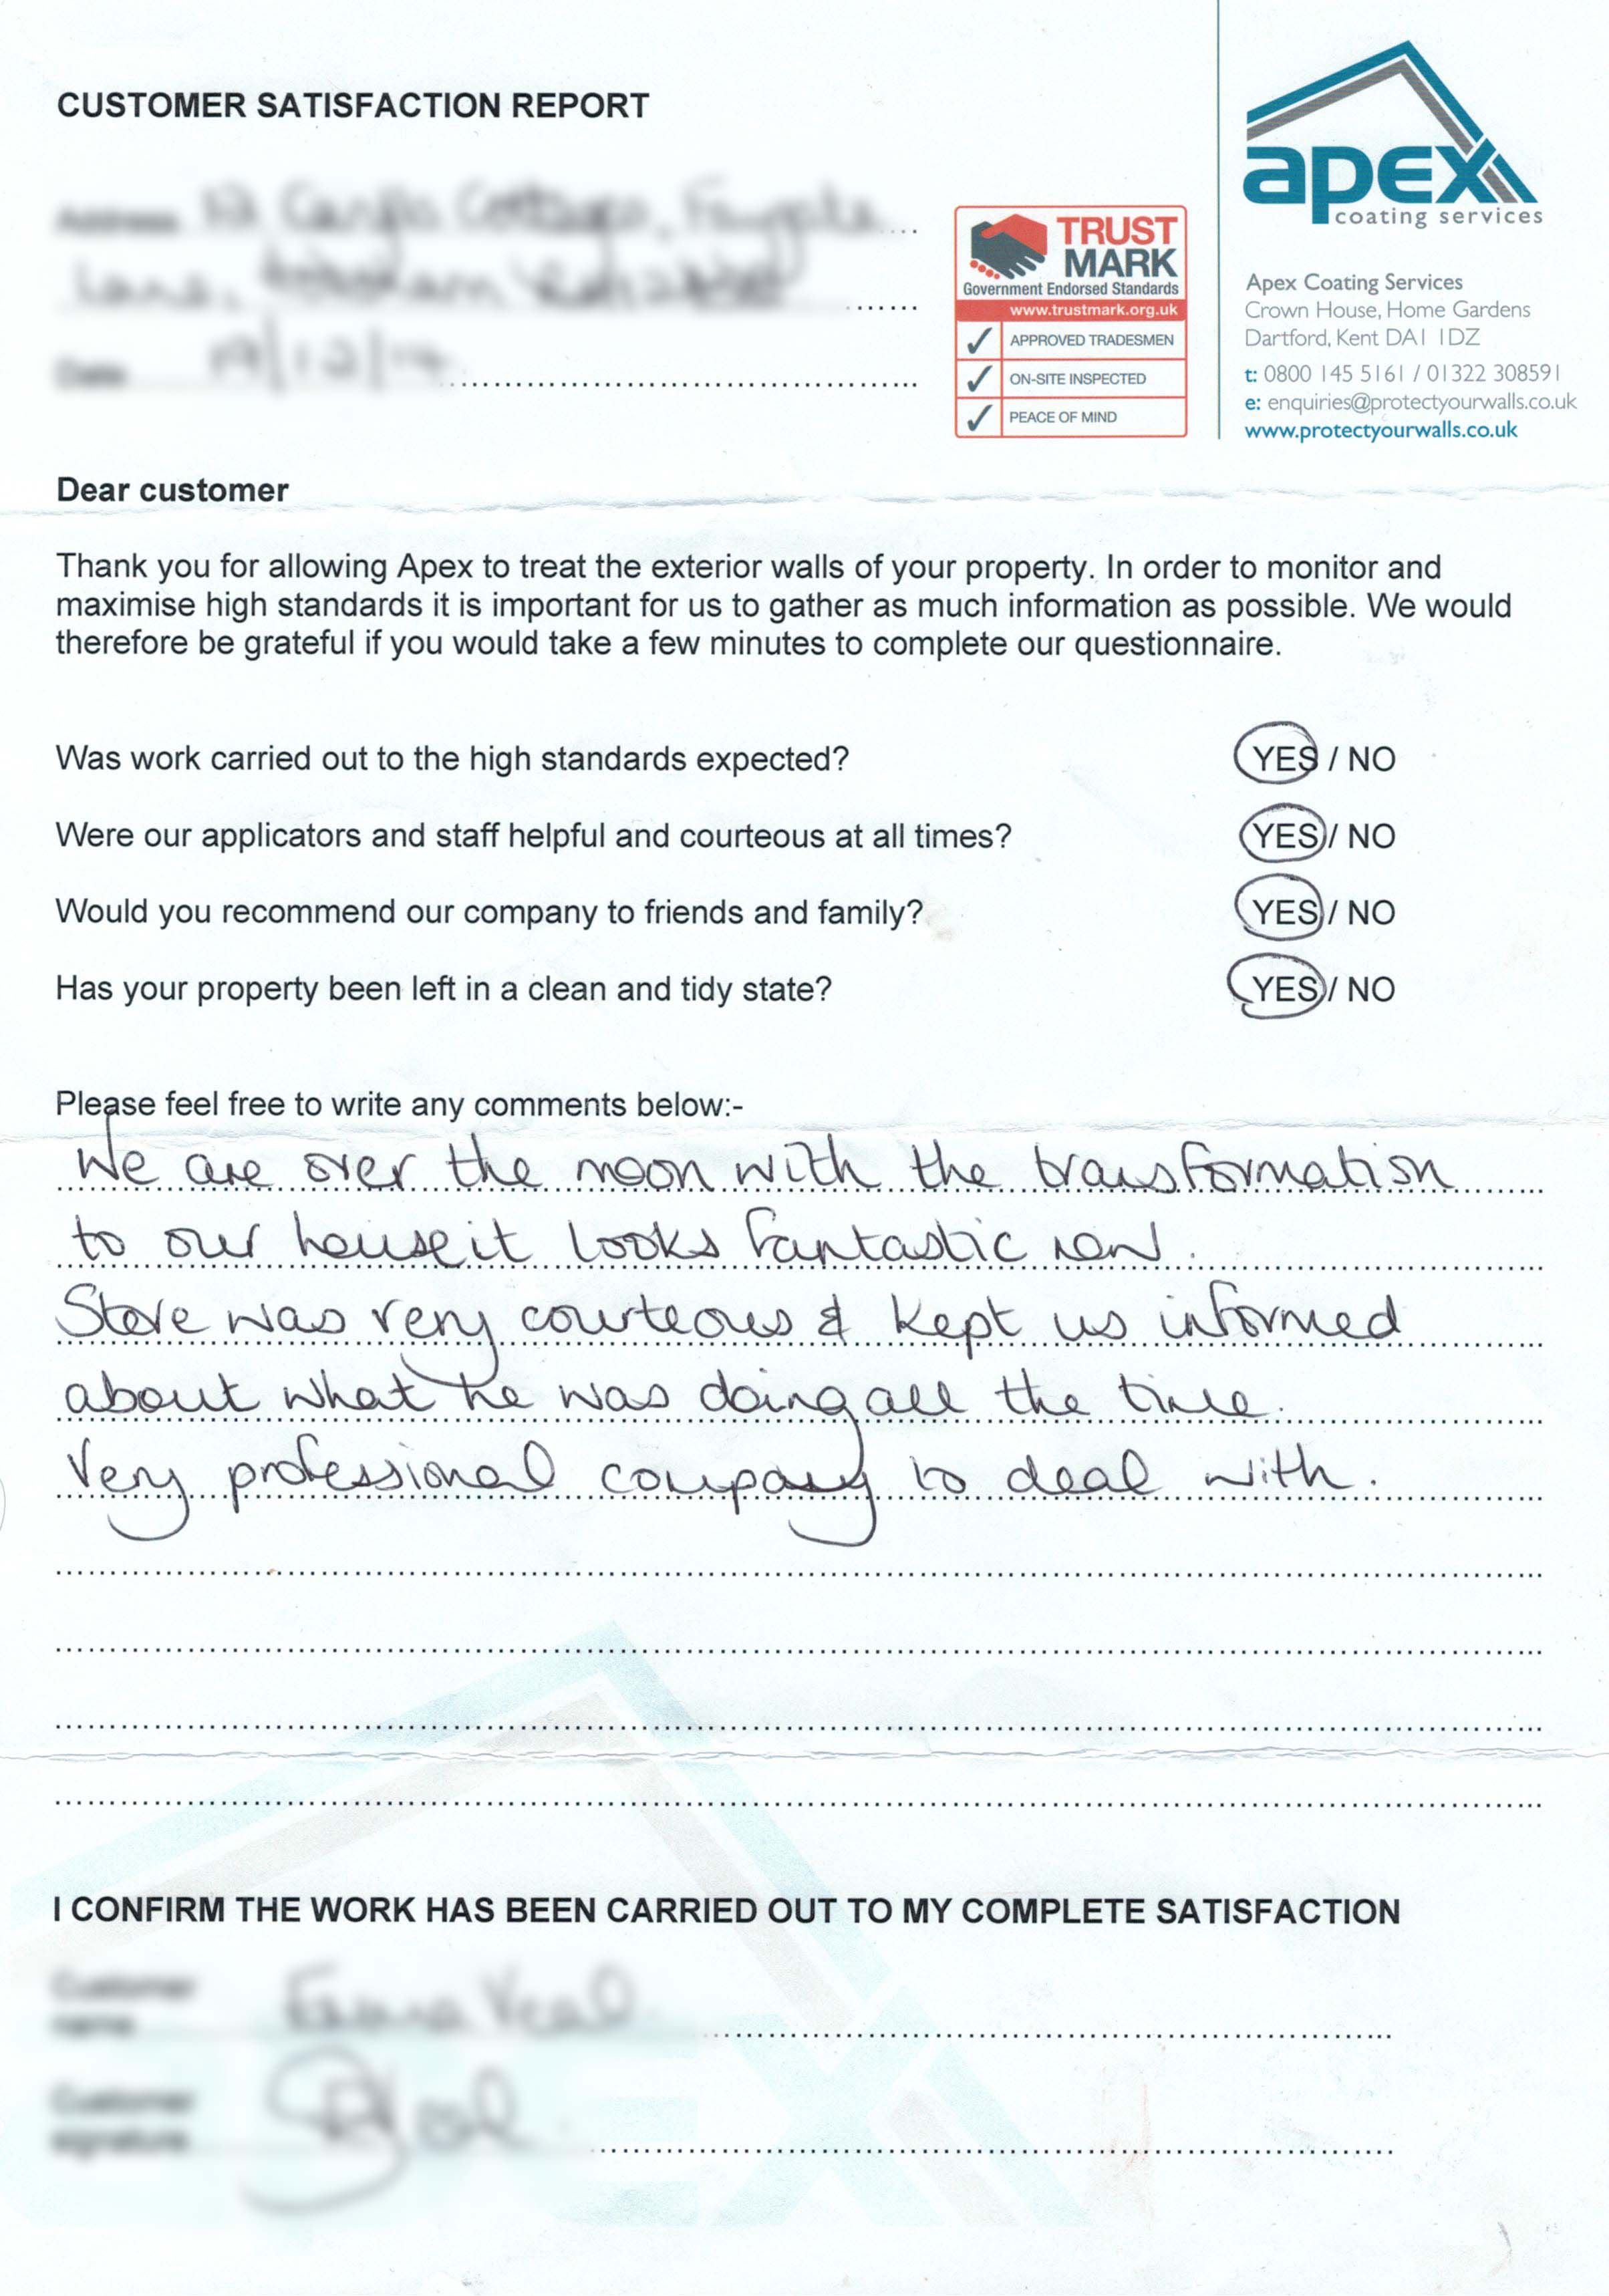 CUSTOMER SATISFACTION REPORT
apex
coating services
TRUST
MARK
Government Endorsed Standards
www.trustmark.org.uk
APPROVED TRADESMEN
ON-SITE INSPECTED
PEACE OF MIND
Apex Coating Services
Crown House, Home Gardens
Dartford, Kent DA1 1DZ
t: 0800 145 5161 / 01322 308591
e: enquiries@protectyourwalls.co.uk
www.protectyourwalls.co.uk
Address
Date
Dear customer
Thank you for allowing Apex to treat the exterior walls of your property. In order to monitor and
maximise high standards it is important for us to gather as much information as possible. We would
therefore be grateful if you would take a few minutes to complete our questionnaire.
Was work carried out to the high standards expected? YES / NO
Were our applicators and staff helpful and courteous at all times? YES / NO
Would you recommend our company to friends and family? YES / NO
Has your property been left in a clean and tidy state? YES / NO
Please feel free to write any comments below:-
We are over the moon with the transformation
to our house it looks fantastic now.
Steve was very courteous & kept us informed
about what he was doing all the time.
Very professional company to deal with.
I CONFIRM THE WORK HAS BEEN CARRIED OUT TO MY COMPLETE SATISFACTION
Customer
name
Customer
signature